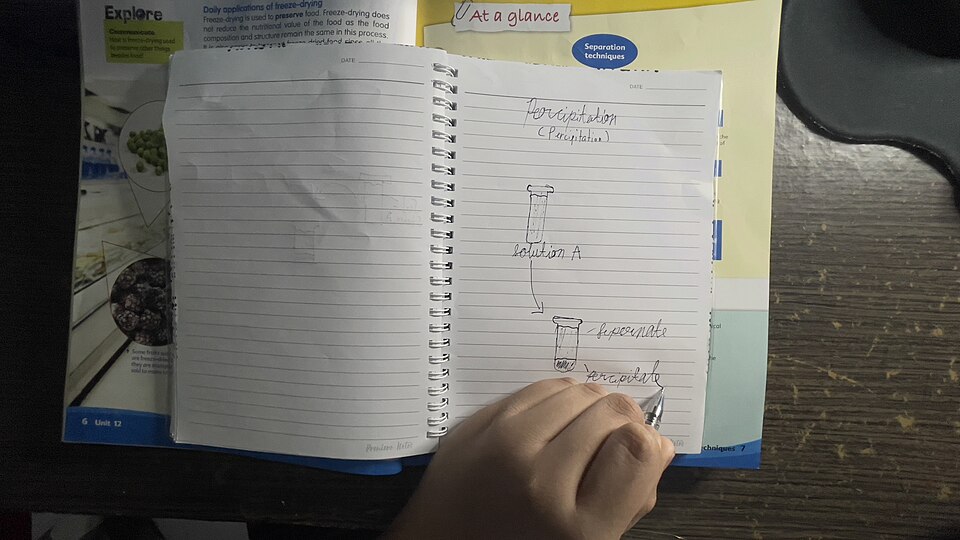 Explore
Communicate
How is freeze-drying used
to preserve other things
besides food?
Daily applications of freeze-drying
Freeze-drying is used to preserve food. Freeze-drying does
not reduce the nutritional value of the food as the food
composition and structure remain the same in this process.
At a glance
Separation
techniques
DATE
DATE
Percipitation
(Percipitation)
solution A
Supernate
Percipitate
Some fruits
are freeze-dried
they are
6 Unit 12
chniques 7